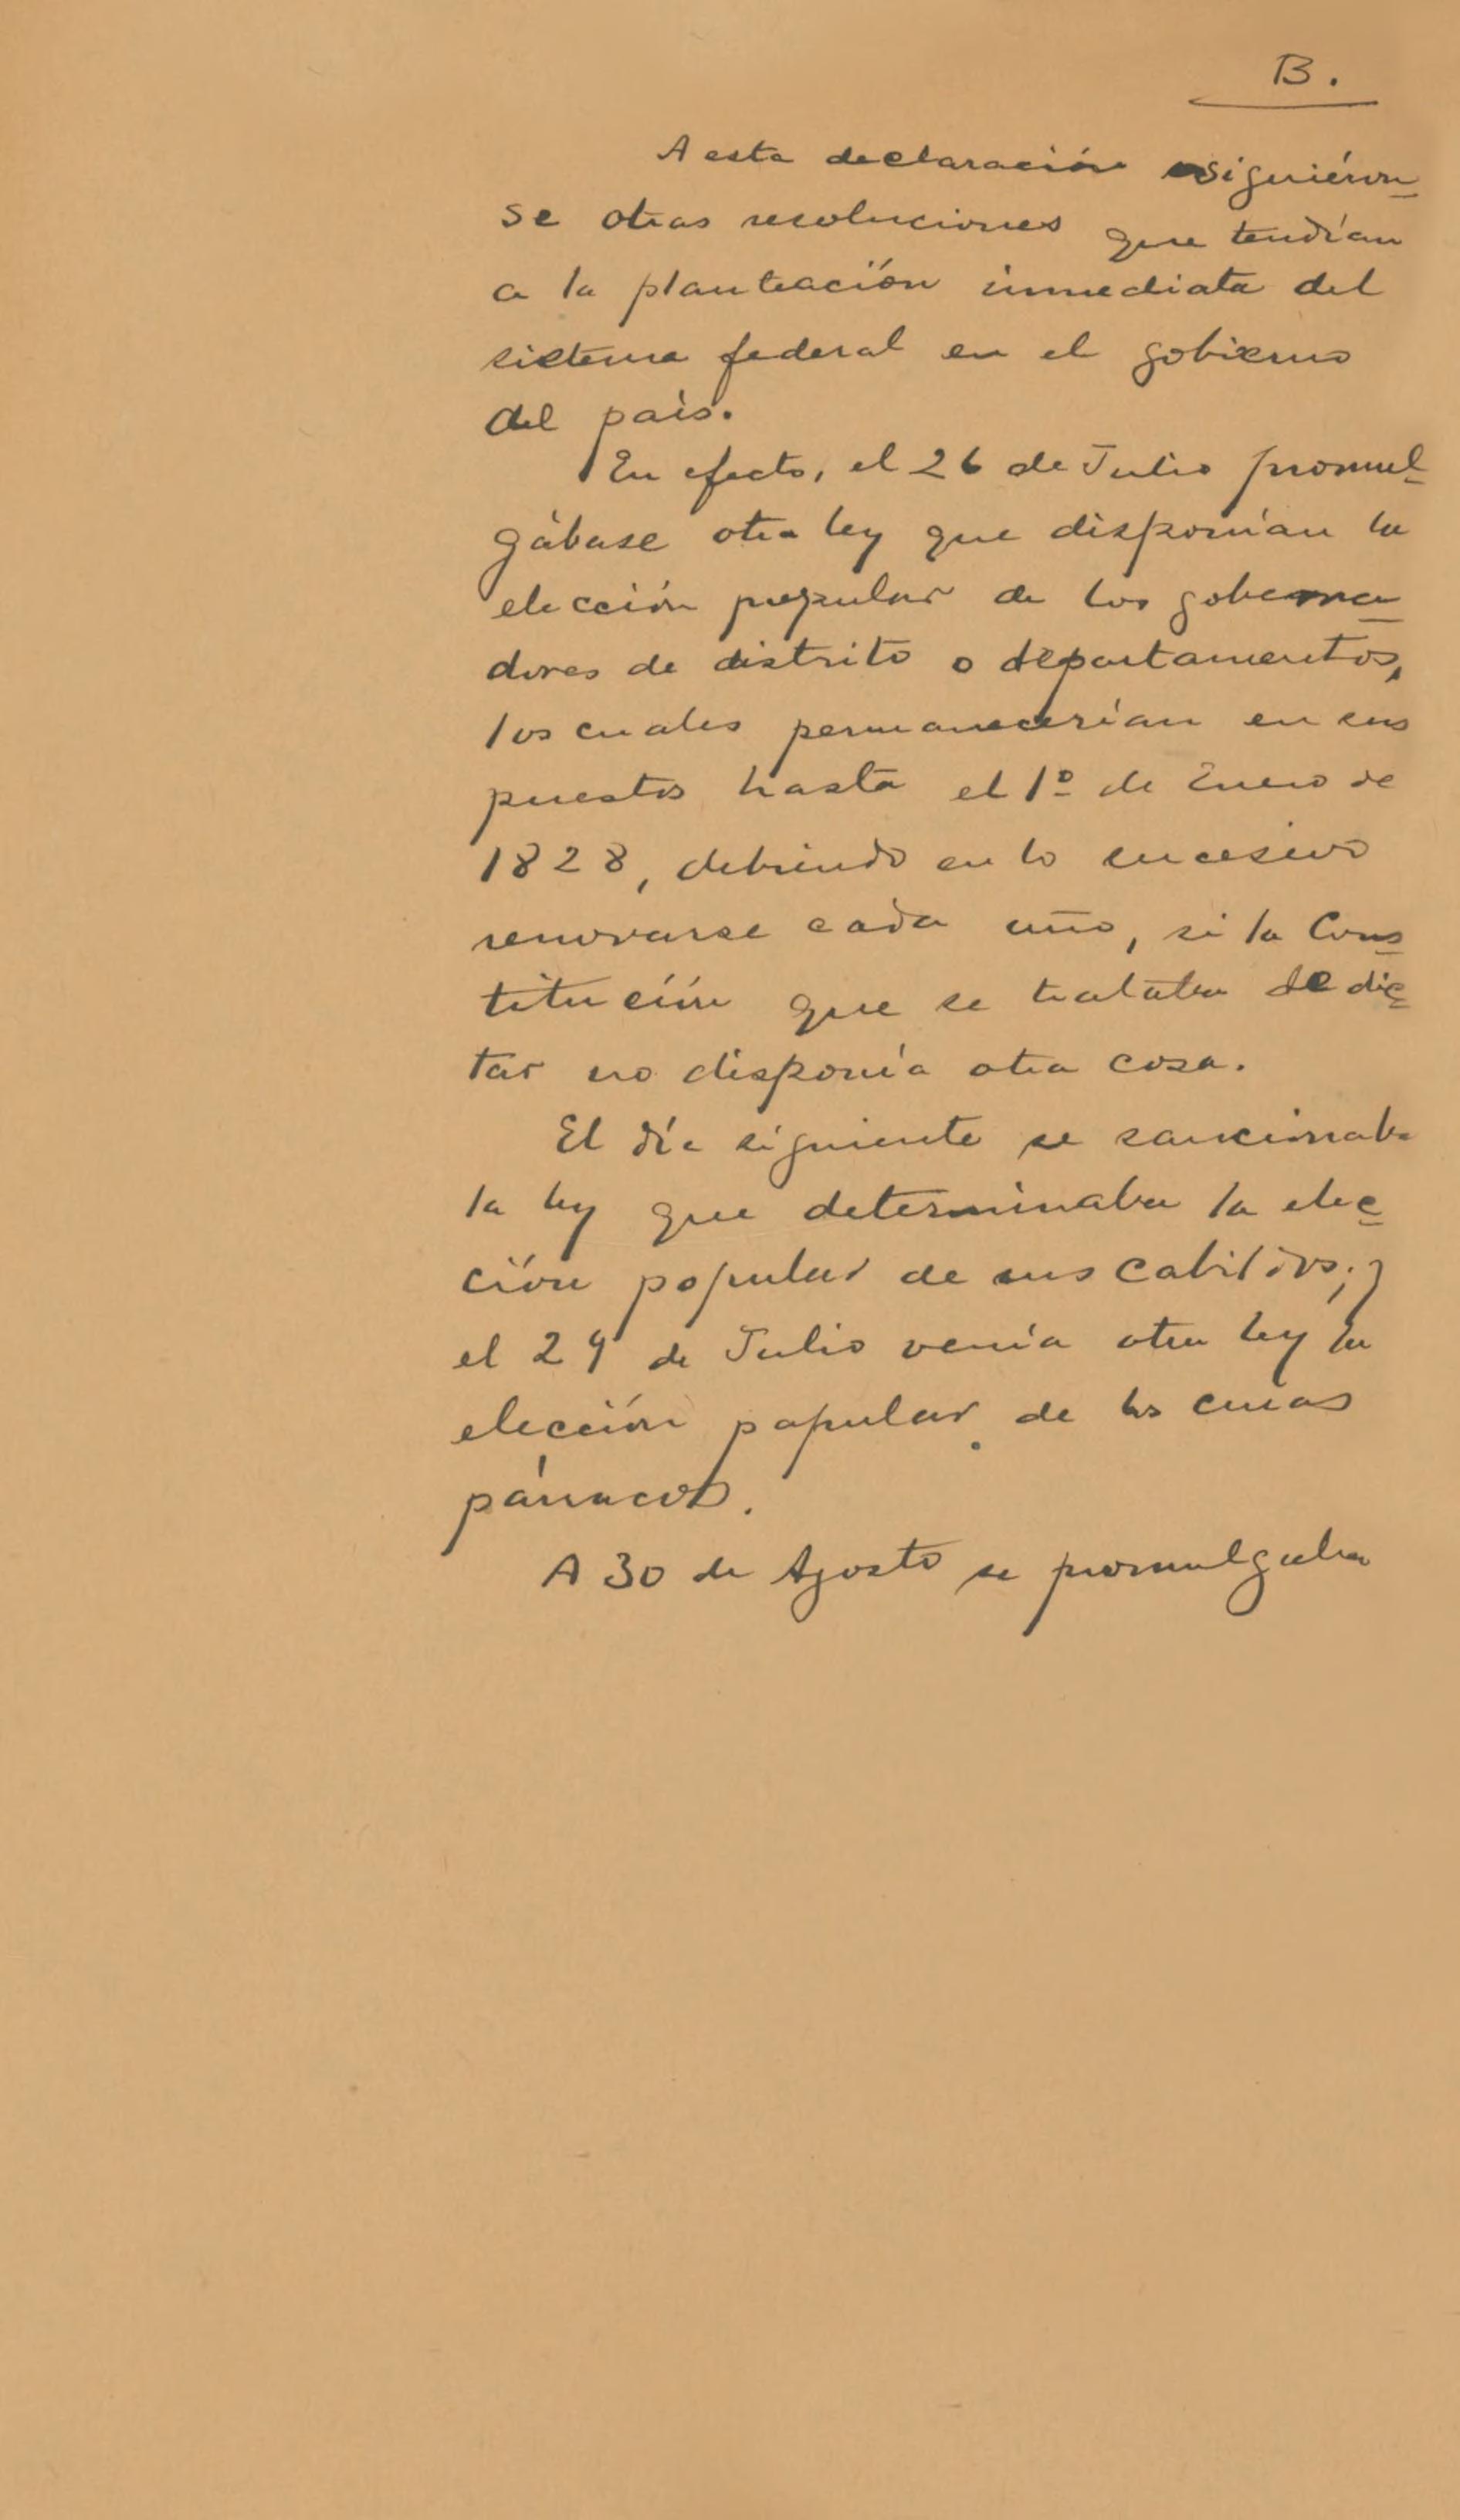 B.
A esta declaración siguiéron
se otras resoluciones que tendían
a la planteación inmediata del
sistema federal en el gobierno
del país.
En efecto, el 26 de Julio promul
gábase otra ley que disponían la
elección popular de los goberna
dores de distrito o departamentos,
los cuales permanecerían en sus
puestos hasta el 1º de Enero de
1828, debiendo en lo sucesivo
renovarse cada año, si la Cons
titución que se trataba de dic
tar no disponía otra cosa.
El día siguiente se sancionaba
la ley que determinaba la elec
ción popular de sus cabildos; y
el 29 de Julio venía otra ley la
elección popular de los curas
párrocos.
A 30 de Agosto se promulgaba